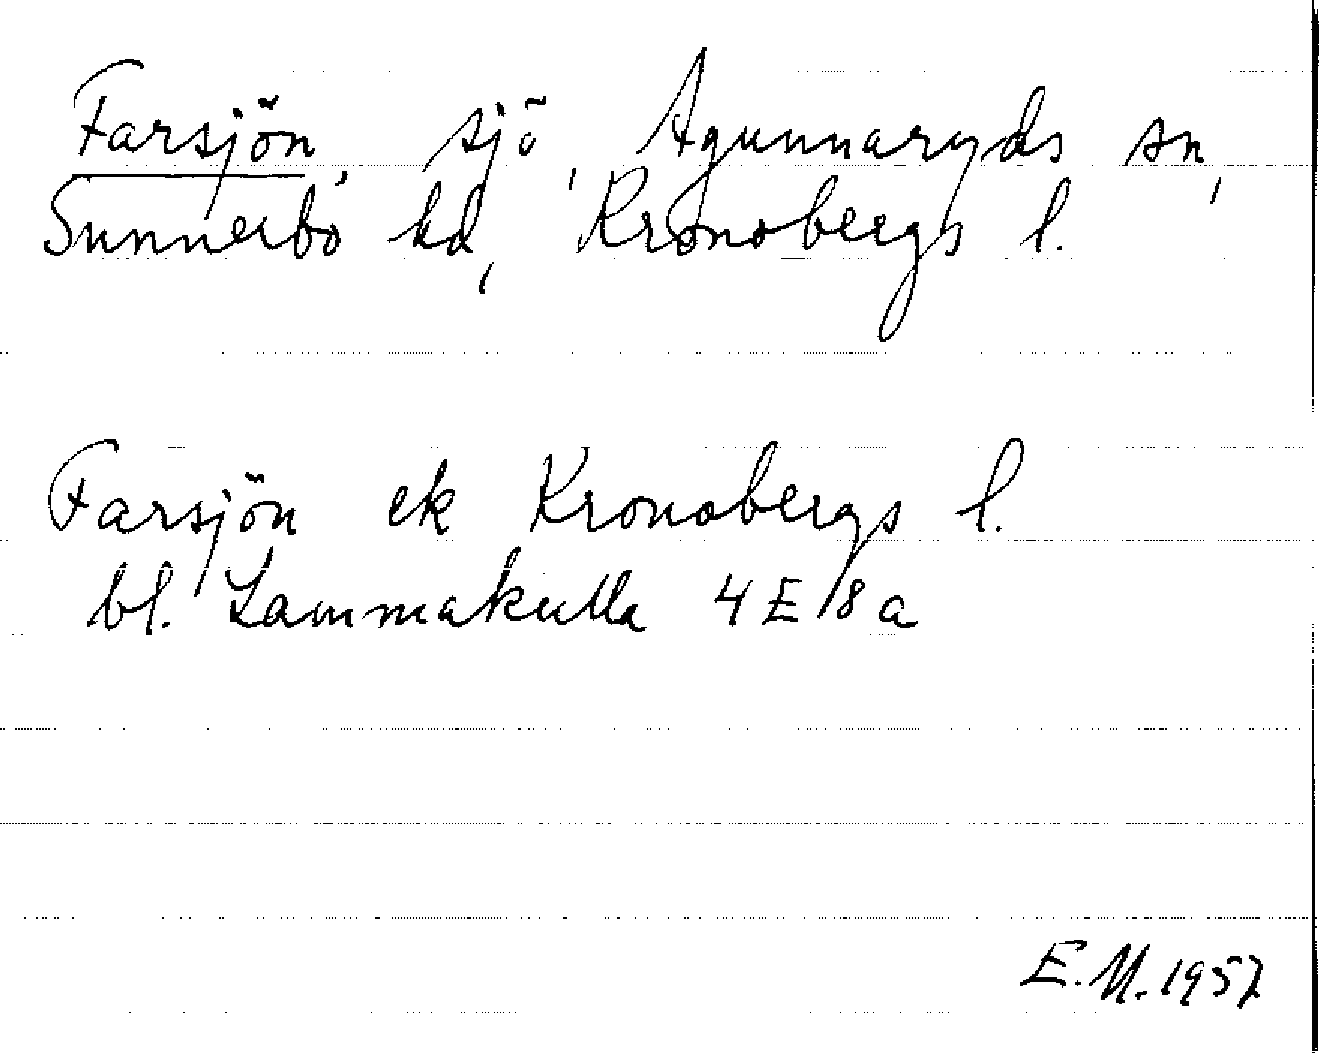 Farsjön, sjö, Agunnaryds sn,
Sunnerbo hd, Kronobergs l.
Farsjön ek Kronobergs l.
bl. Lammakulla 4 E 18 a
E.M. 1957